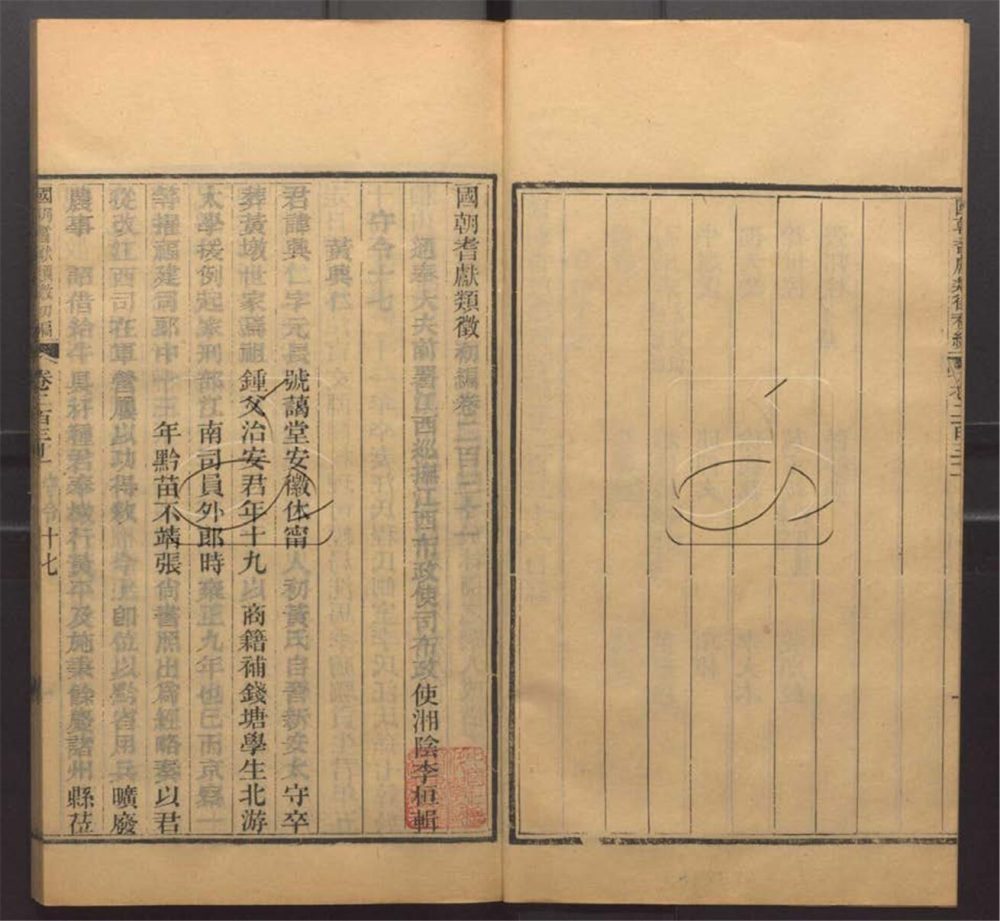 國朝耆獻類徵初編
國朝耆獻類徵初編卷二百三十一
通奉大夫前署江西巡撫江西布政使司布政使湘陰李桓輯
守令十七
黃興仁
君諱興仁字元長號藹堂安徽休甯人初黃氏自晉新安太守卒
葬黃墩世家焉祖鍾父治安君年十九以商籍補錢塘學生北游
太學援例起家刑部江南司員外郎時雍正九年也已而京察一
等擢福建司郎中十三年黔苗不靖張尚書照出爲經略奏以君
從改江西司在軍營屢以功得敘今上即位以黔省用兵曠廢
農事 詔借給牛具籽種君奉檄行黃平及施秉餘慶諸州縣莅
國朝耆獻類徵初編 卷二百三十一 十七